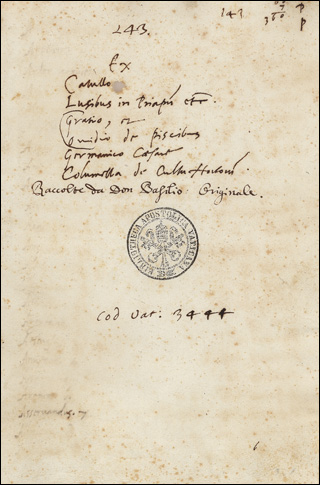 143.
143
Ex
Catullo
Lusibus in Priapũ etc.
Gratio, et
Ouidio de Piscibus
Germanico Cæsare
Columella de Cultu Hortorũ
Raccolte da Don Basilio Originale.
BIBLIOTHECA APOSTOLICA VATICANA
Cod Vat: 3444
6